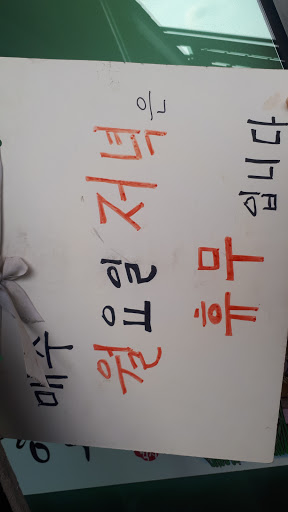 매주
월요일 저녁은
휴무 입니다